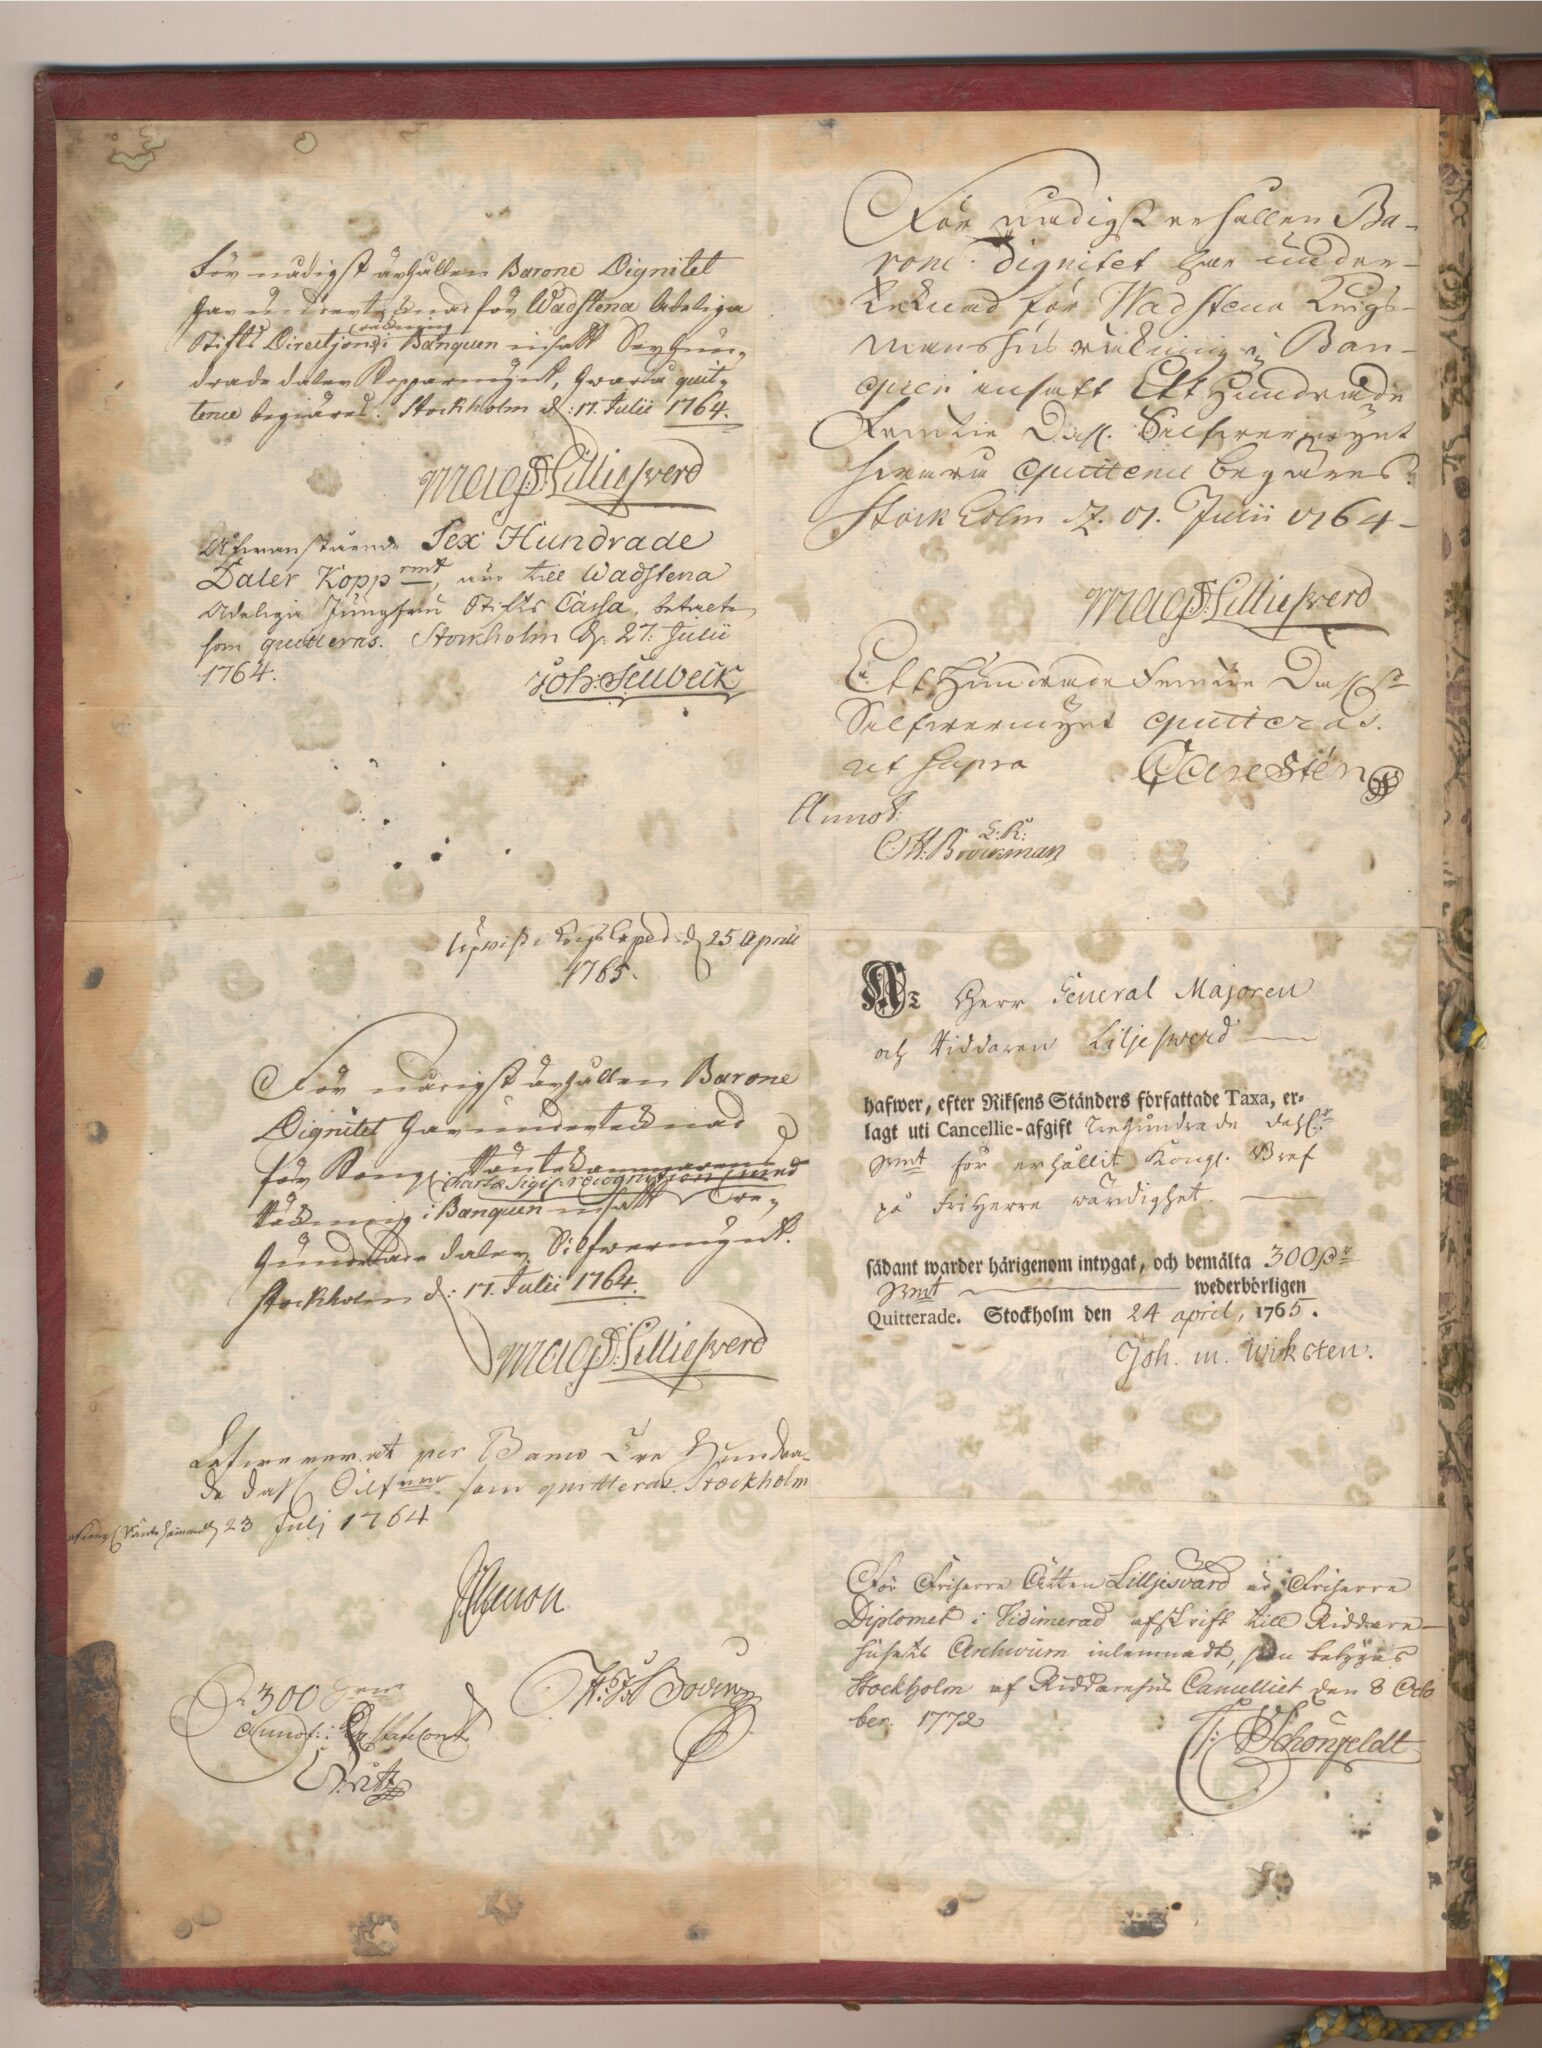 För nådigst ärhållen Barone Dignitet
har undertecknad för Wadstena Adeliga
räkning
Stifts Directions i Banquen insatt Sex Hun-
drade daler Kopparmynt, hvarå quit-
tence begiäres. Stockholm d: 17. Julii 1764.
Mag: D: Lilliesverd
Ofvanstående Sex Hundrade
Daler Kopp rmt, äro till Wadstena
Adeliga Jungfru Stifts Cassa, betalte
som quitteras. Stockholm d. 27: Julii
1764.
Joh:
För nådigst erhållen Ba-
rone dignitet har under-
tecknad för Wadstena Krigs-
manshus räkning i Ban-
quen insatt Ett Hundrade
Femtie Dal. Silfwermynt
hvaru quittence begäres.
Stockholm d. 17. Julii 1764
Mag: D: Lilliesverd
Ett Hundrade Femtie Dal. Sr
Silfwermynt quitteras.
ut supra
Annot:
L: R:
Brockman
Upvist i Kongl. Exped. d 25 April
1765.
För nådigst ärhållen Barone
Dignitet har undertecknad
för Kongl Räntekammarens
Charta Sigil: recognition
Räkning i Banquen insatt Tre-
hundrade daler Silfwermynt.
Stockholm d: 17. Julii 1764.
Mag: D: Lilliesverd
Lefvererat per Banco Tre Hundra-
de dal Silf rmt som quitteras. Stockholm
23 Julj 1764
300
Annot: i
At Herr General Majoren
och Riddaren Liljeswerd
hafwer, efter Riksens Ständers författade Taxa, er-
lagt uti Cancellie-afgift Trehundrade dahl:r
Smt för erhållit Kongl. Bref
på FriHerre värdighet.
sådant warder härigenom intygat, och bemälta 300 D r
Smt wederbörligen
Quitterade. Stockholm den 24 april, 1765.
Joh. M. Wiksten.
För Friherre Ätten Lilljesvärd är Friherre
Diplomet i Vidimerad afskrift till Riddare-
husets Archivum inlemnadt, som betygas
Stockholm af Riddarehus Cancelliet den 8 Octo
ber. 1772
Schönfeldt